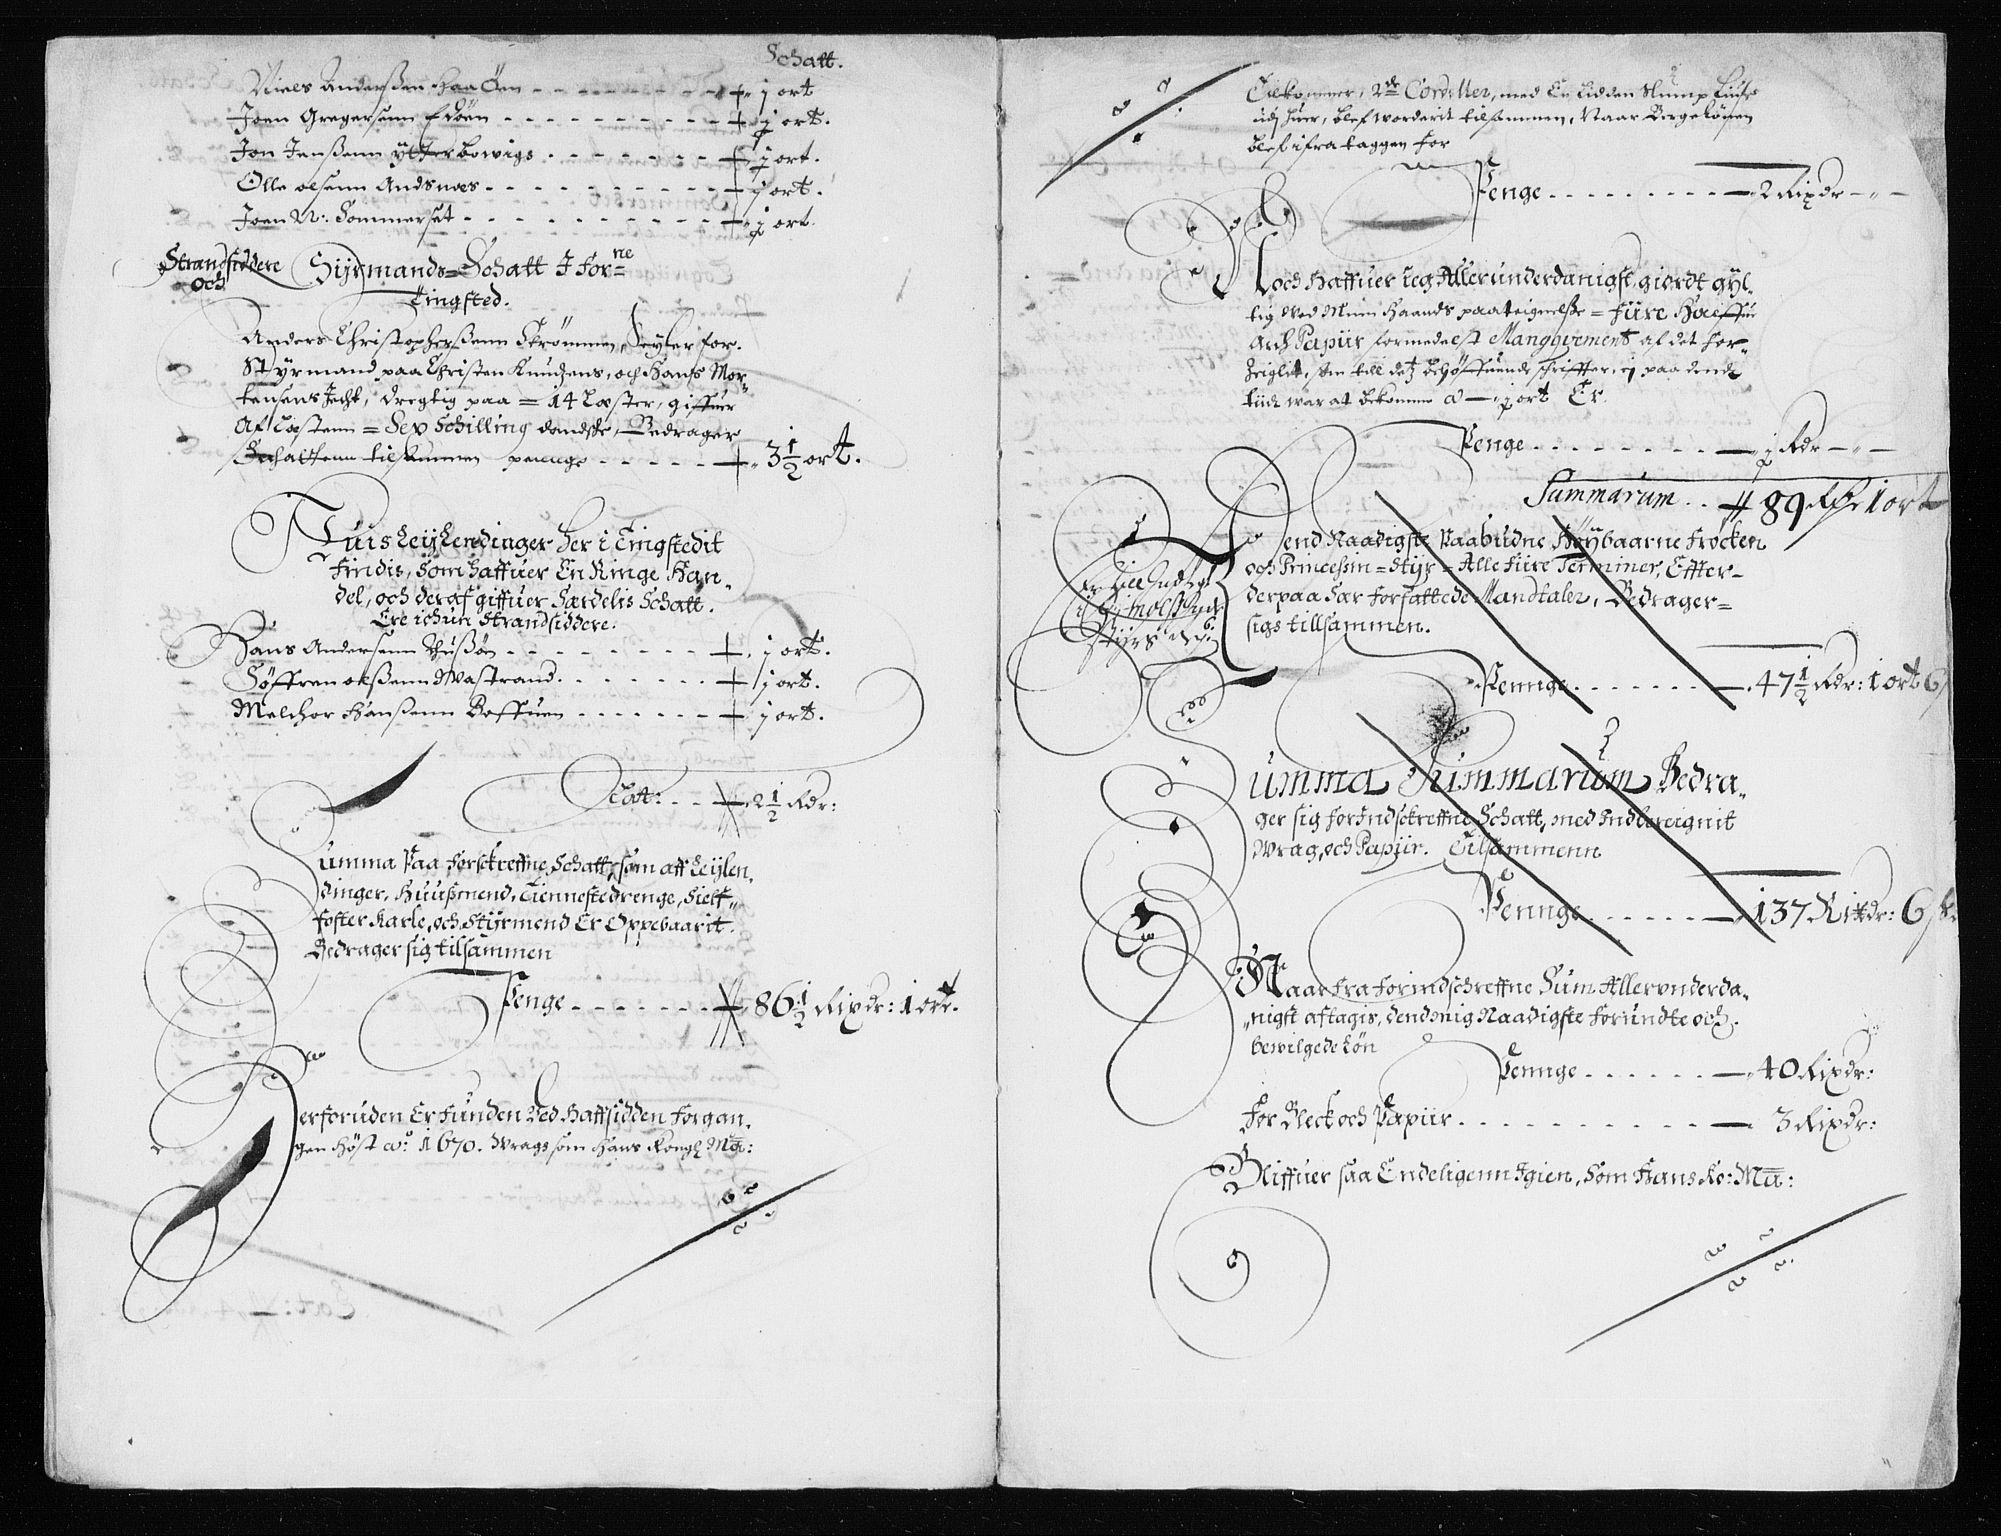 Schatt.
Niels Anderßen Haa Öen - - - - - - - - j ort
Joen Gregersenn Edöen - - - - - - - - j ort.
Jon Jenßenn ÿtterbowigs - - - - - - - j ort.
Olle olsenn Andsnæs - - - - - - - - - j ort.
Joen N: Sommerset - - - - - - - - - - j ort.
Strandsiddere
och
Stÿrmands= Schatt I for:ne
Tingsted.
Anders Christopherßenn Strömmen, Seyler for.
Stÿrmand paa Christen Knudzens, och Hans Mor,,
tensens Jacht, dregtig paa = 14 Læster, giffuer
Af Læstenn = Sex Schilling danske, Bedrager
Schattenn tilsammen penge - - - - - 3 1/2 ort.
Huis Leÿlendinger her i Tingstedit
Findis, Som haffuer En Ringe Han,,
del, och deraf giffuer Særdelis Schatt.
Ere ichun Strandsiddere.
Hans Andersenn Husöe - - - - - - - j ort.
Söffren olßenn Wastrand - - - - - - j ort.
Melchor Hanßenn Boffuen - - - - - - j ort.
Lat: - - 2 1/2 Rdr:
Summa Paa forschreffne Schatt, som aff Leÿlen,,
dinger, Huußmend, Tiennestedrenge, Sielf,,
foster Karle, och Stÿrmend Er Oppebaarit.
Bedrager sig tilsammen
Penge - - - - - - - 86 1/2 Rixdr: 1 ort.
Derforuden Er funden Ved Haffsidden forgan,,
gen Höst Ao: 1670. Wrags som Hans Kongl Ma:
Tilkommer, 2de Cordeller, med En lidden Stump
ud huer, blef worderit tilsammen, Naar Bergelönen
blef ifra taggen for
Penge - - - - - - - - 2 Rixdr - ,, -
Noch Haffuer ieg Allerunderdanigst, giordt gÿl,,
tig Med Minn Haands paateignelse = fiire
Arch Papiir formedelst Mangquement af det for,,
Zeiglit, Som till detz behöffuende schriffter, ej paa dend
tiidt war at bekomme a - j ort Er
Penge - - - - - - - - j Rdr - ,, -
Summarum . . 89 Rdr 1 ort
Dend Naadigste Paabudne Höÿbaarne Fröcken
och Princessin = Stÿr = Alle fiire Terminer, Effter=
derpaa Sær forfattede Mandtaler, Bedrager=
sigs tillsammen.
Pennge - - - - - - - 47 1/2 Rdr: 1 ort 6
Summa Summarum Bedra,,
ger sig forIndschreffne Schatt, med Indberegnit
Wrag, och Papiir. Tilsammenn
Pennge - - - - - - 137 Rixdr: 6
Naar fra forindschreffne Sum Allerunderda,,
nigst aftagis, dend mig Naadigste forundte och
bewilgede Lön
Pennge - - - - - - 40 Rixdr:
For Bleck och Papiir - - - - - - - - 3 Rixdr:
Bliffuer saa Endeligenn Igien, Som Hans Ko: Ma: